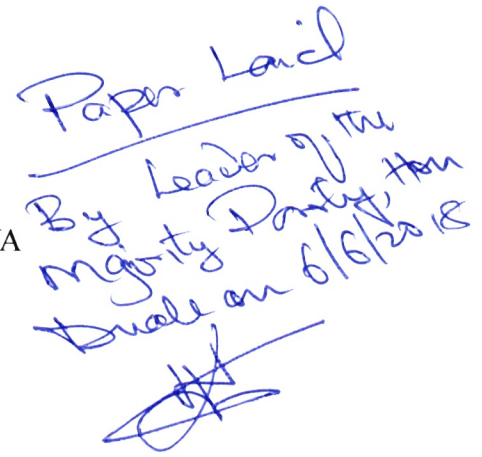 Paper Laid
By Leader of the
Majority Party, Hon
Duale on 6/6/2018